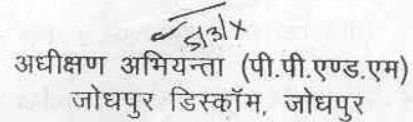 अधीक्षण अभियन्ता (पी.पी.एण्ड.एम)
जोधपुर डिस्कॉम, जोधपुर